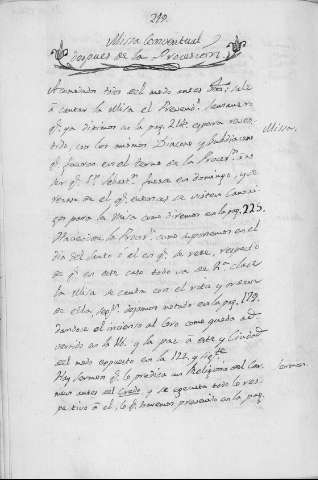 219.
Missa Conventual
despues de la Procession.
Acomodados todos del modo antes dho; sale
à cantar la Missa el Prevend.º
q.e ya diximos en la pag. 214. espera revest-
tido, con los mismos Diacono y Subdiacono
Missa.
q.e fueron en el terno en la Proces.n à no
ser q.e S.n Sebast.n fuesse en domingo,
q.e entonces se visten Canoni-
gos para la Missa como diremos en la pag. 225.
Haciendose la Proces.n como suponemos en el
dia del Santo ò el en q.e se reze, respecto
de q.e en este caso todo va de 1.a clase
la Missa se canta con el rito y
de ella, seg.n dejamos notado en la pag. 179.
dandose el incienso al Coro como queda ad-
vertido en la 141. y la paz à este y Ciudad
del modo expuesto en la 122. y sig.te
Hay Sermon q.e lo predica un Religioso del Car-
Sermon.
men antes del Credo, y se egecuta todo lo res-
pectivo à el, lo q.e tenemos prevenido en la pag.